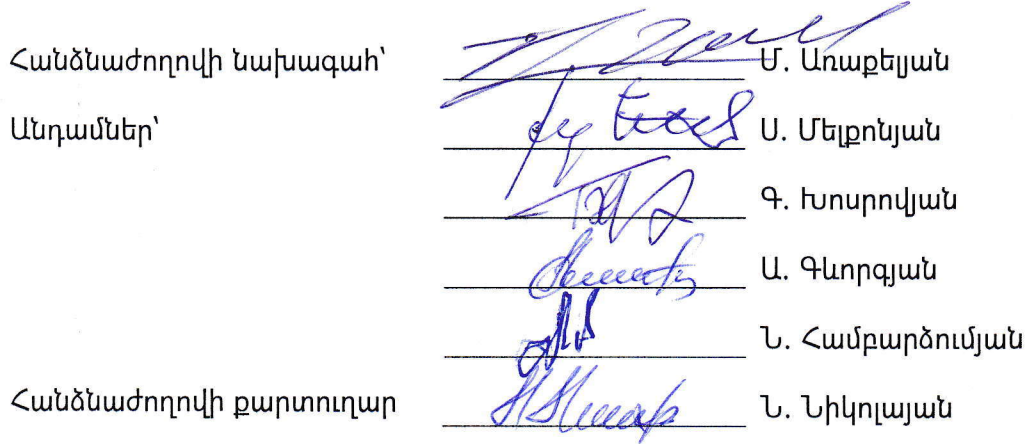 Հանձնաժողովի նախագահ՝ Մ. Առաքելյան
Անդամներ՝ Ս. Մելքոնյան
Գ. Խոսրովյան
Ա. Գևորգյան
Ն. Համբարձումյան
Հանձնաժողովի քարտուղար Ն. Նիկոլայան